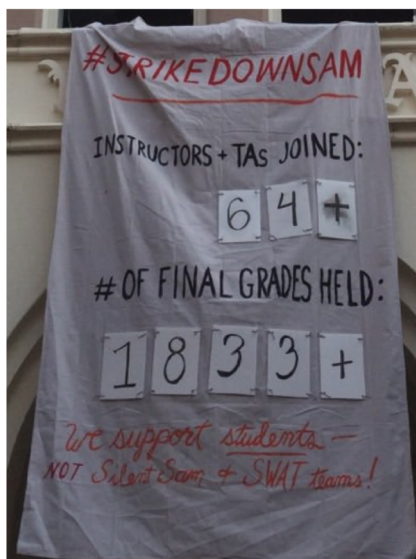 #STRIKEDOWNSAM
INSTRUCTORS + TAS JOINED:
64+
# OF FINAL GRADES HELD:
1833+
We support students —
NOT Silent Sam & SWAT teams!